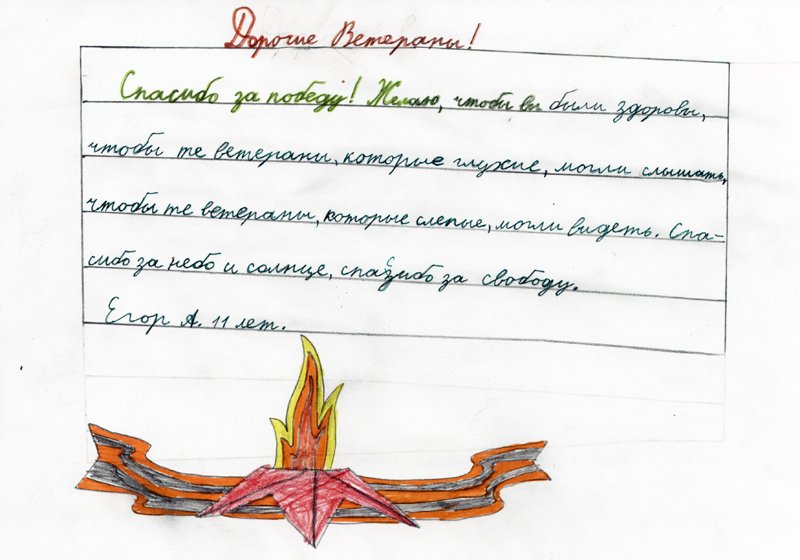 Дорогие Ветераны!
Спасибо за победу! Желаю, чтобы вы были здоровы,
чтобы те ветераны, которые глухие, могли слышать,
чтобы те ветераны, которые слепые, могли видеть. Спа-
сибо за небо и солнце, спасибо за свободу.
Егор А. 11 лет.